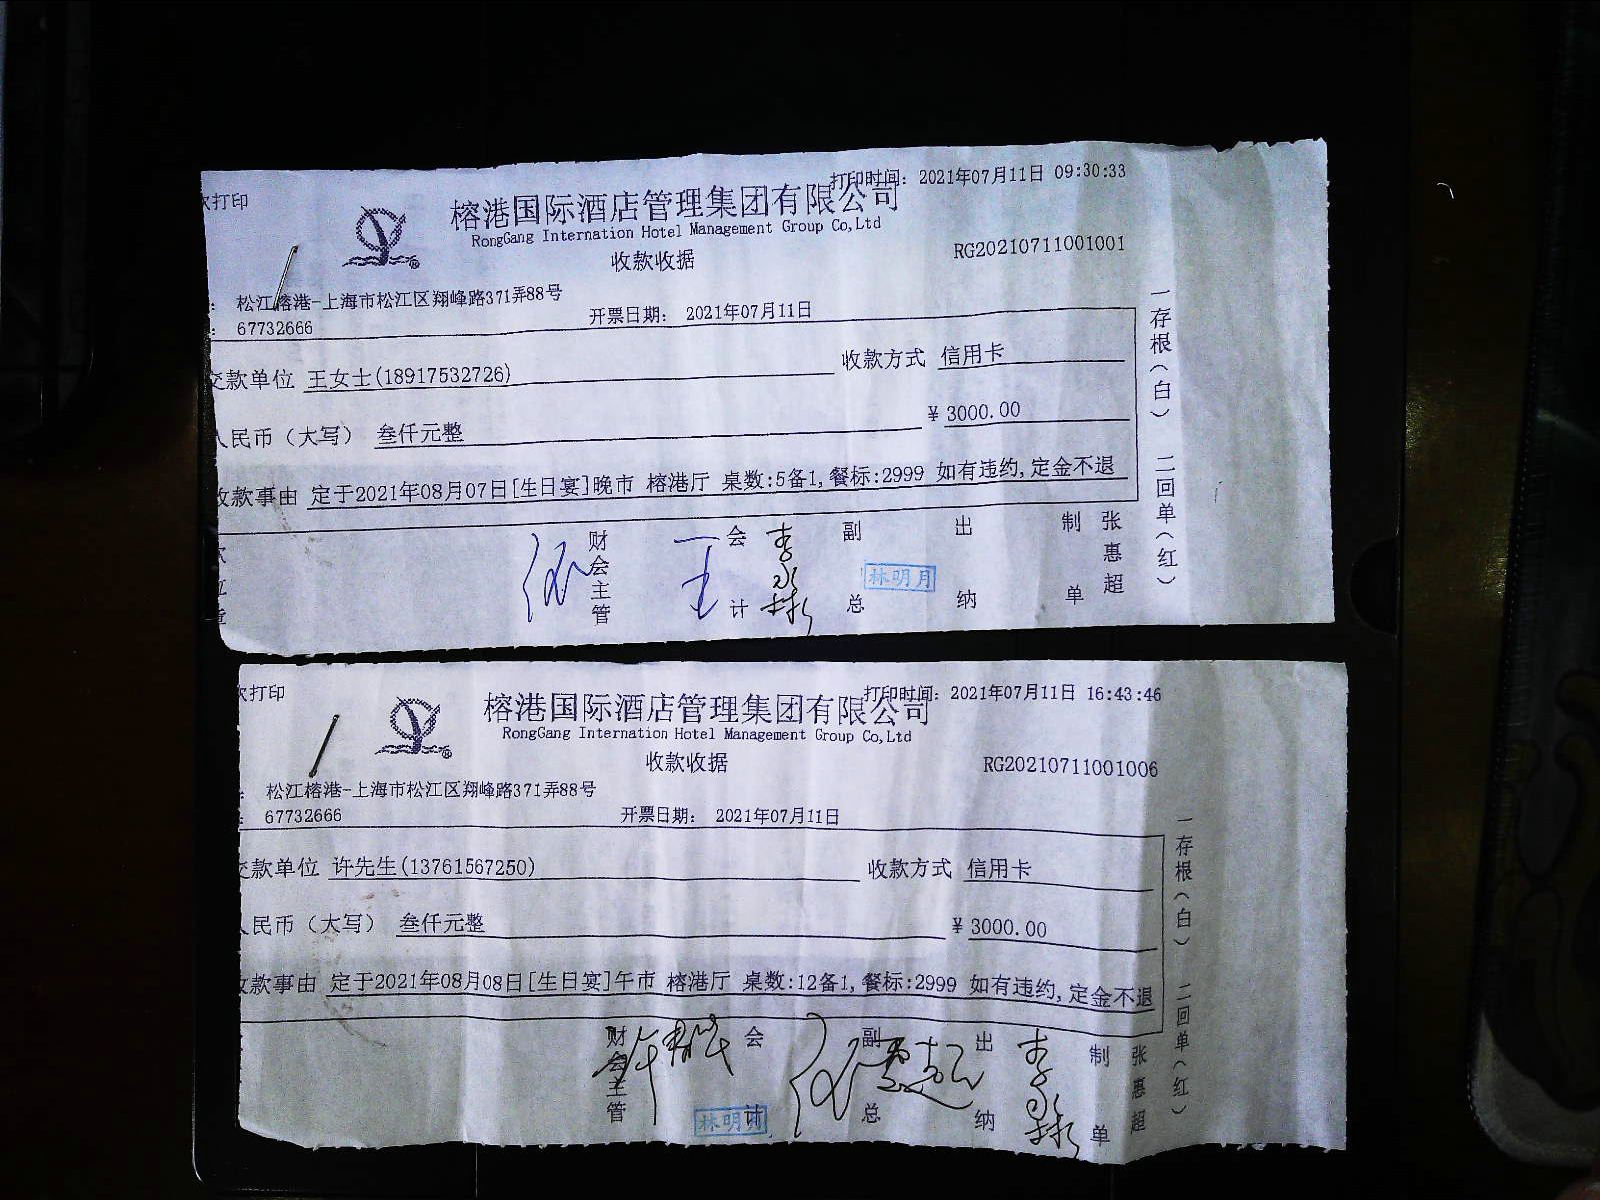 打印
打印时间: 2021年07月11日 09:30:33
榕港国际酒店管理集团有限公司
RongGang Internation Hotel Management Group Co,Ltd
收款收据
RG20210711001001
松江榕港-上海市松江区翔峰路371弄88号
67732666
开票日期: 2021年07月11日
交款单位 王女士(18917532726)
收款方式 信用卡
人民币(大写) 叁仟元整
¥ 3000.00
收款事由 定于2021年08月07日[生日宴]晚市 榕港厅 桌数:5备1,餐标:2999 如有违约,定金不退
财会主管
会计
副总
出纳
制单 张惠超
林明月
一存根(白) 二回单(红)
打印
打印时间: 2021年07月11日 16:43:46
榕港国际酒店管理集团有限公司
RongGang Internation Hotel Management Group Co,Ltd
收款收据
RG20210711001006
松江榕港-上海市松江区翔峰路371弄88号
67732666
开票日期: 2021年07月11日
交款单位 许先生(13761567250)
收款方式 信用卡
人民币(大写) 叁仟元整
¥ 3000.00
收款事由 定于2021年08月08日[生日宴]午市 榕港厅 桌数:12备1,餐标:2999 如有违约,定金不退
财会主管
会计
副总
出纳
制单 张惠超
林明月
一存根(白) 二回单(红)